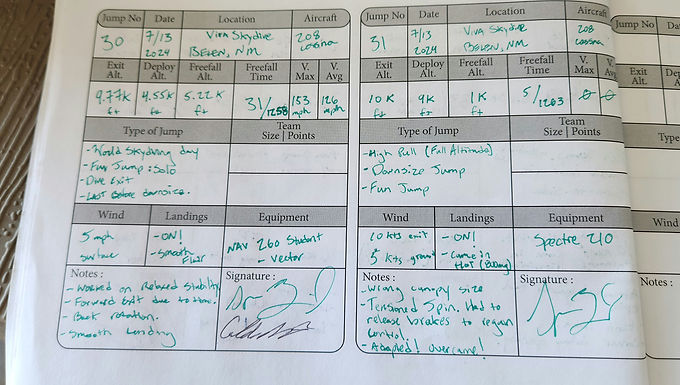 Jump No Date Location Aircraft
30 7/13 2024 Viva Skydive Belen, NM 208 Cessna
Exit Alt. Deploy Alt. Freefall Alt. Freefall Time V. Max V. Avg
9.77K ft 4.55K ft 5.22K ft 31/1258 153 mph 126 mph
Type of Jump Team Size | Points
- World Skydiving day
- Fun Jump: Solo
- Dive Exit
- Last Before downsize.
Wind Landings Equipment
5 mph surface - ON! - Smooth Flair NAV 260 Student - Vector
Notes : Signature :
- Worked on Relaxed Stability
- Forward Exit due to
- Back rotation.
- Smooth Landing
Jump No Date Location Aircraft
31 7/13 2024 Viva Skydive Belen, NM 208 Cessna
Exit Alt. Deploy Alt. Freefall Alt. Freefall Time V. Max V. Avg
10K ft 9K ft 1K ft 5/1263 0 0
Type of Jump Team Size | Points
- High Pull (Full Altitude)
- Downsize Jump
- Fun Jump
Wind Landings Equipment
10 kts exit 5 kts ground - ON! - Came in Hot Spectre 210
Notes : Signature :
- Wrong canopy size
- Tensioned Spin. Had to
release brakes to regain
control.
- Adapted! Overcame!
Jump No Date
Exit Alt.
Type
Wind
Notes :